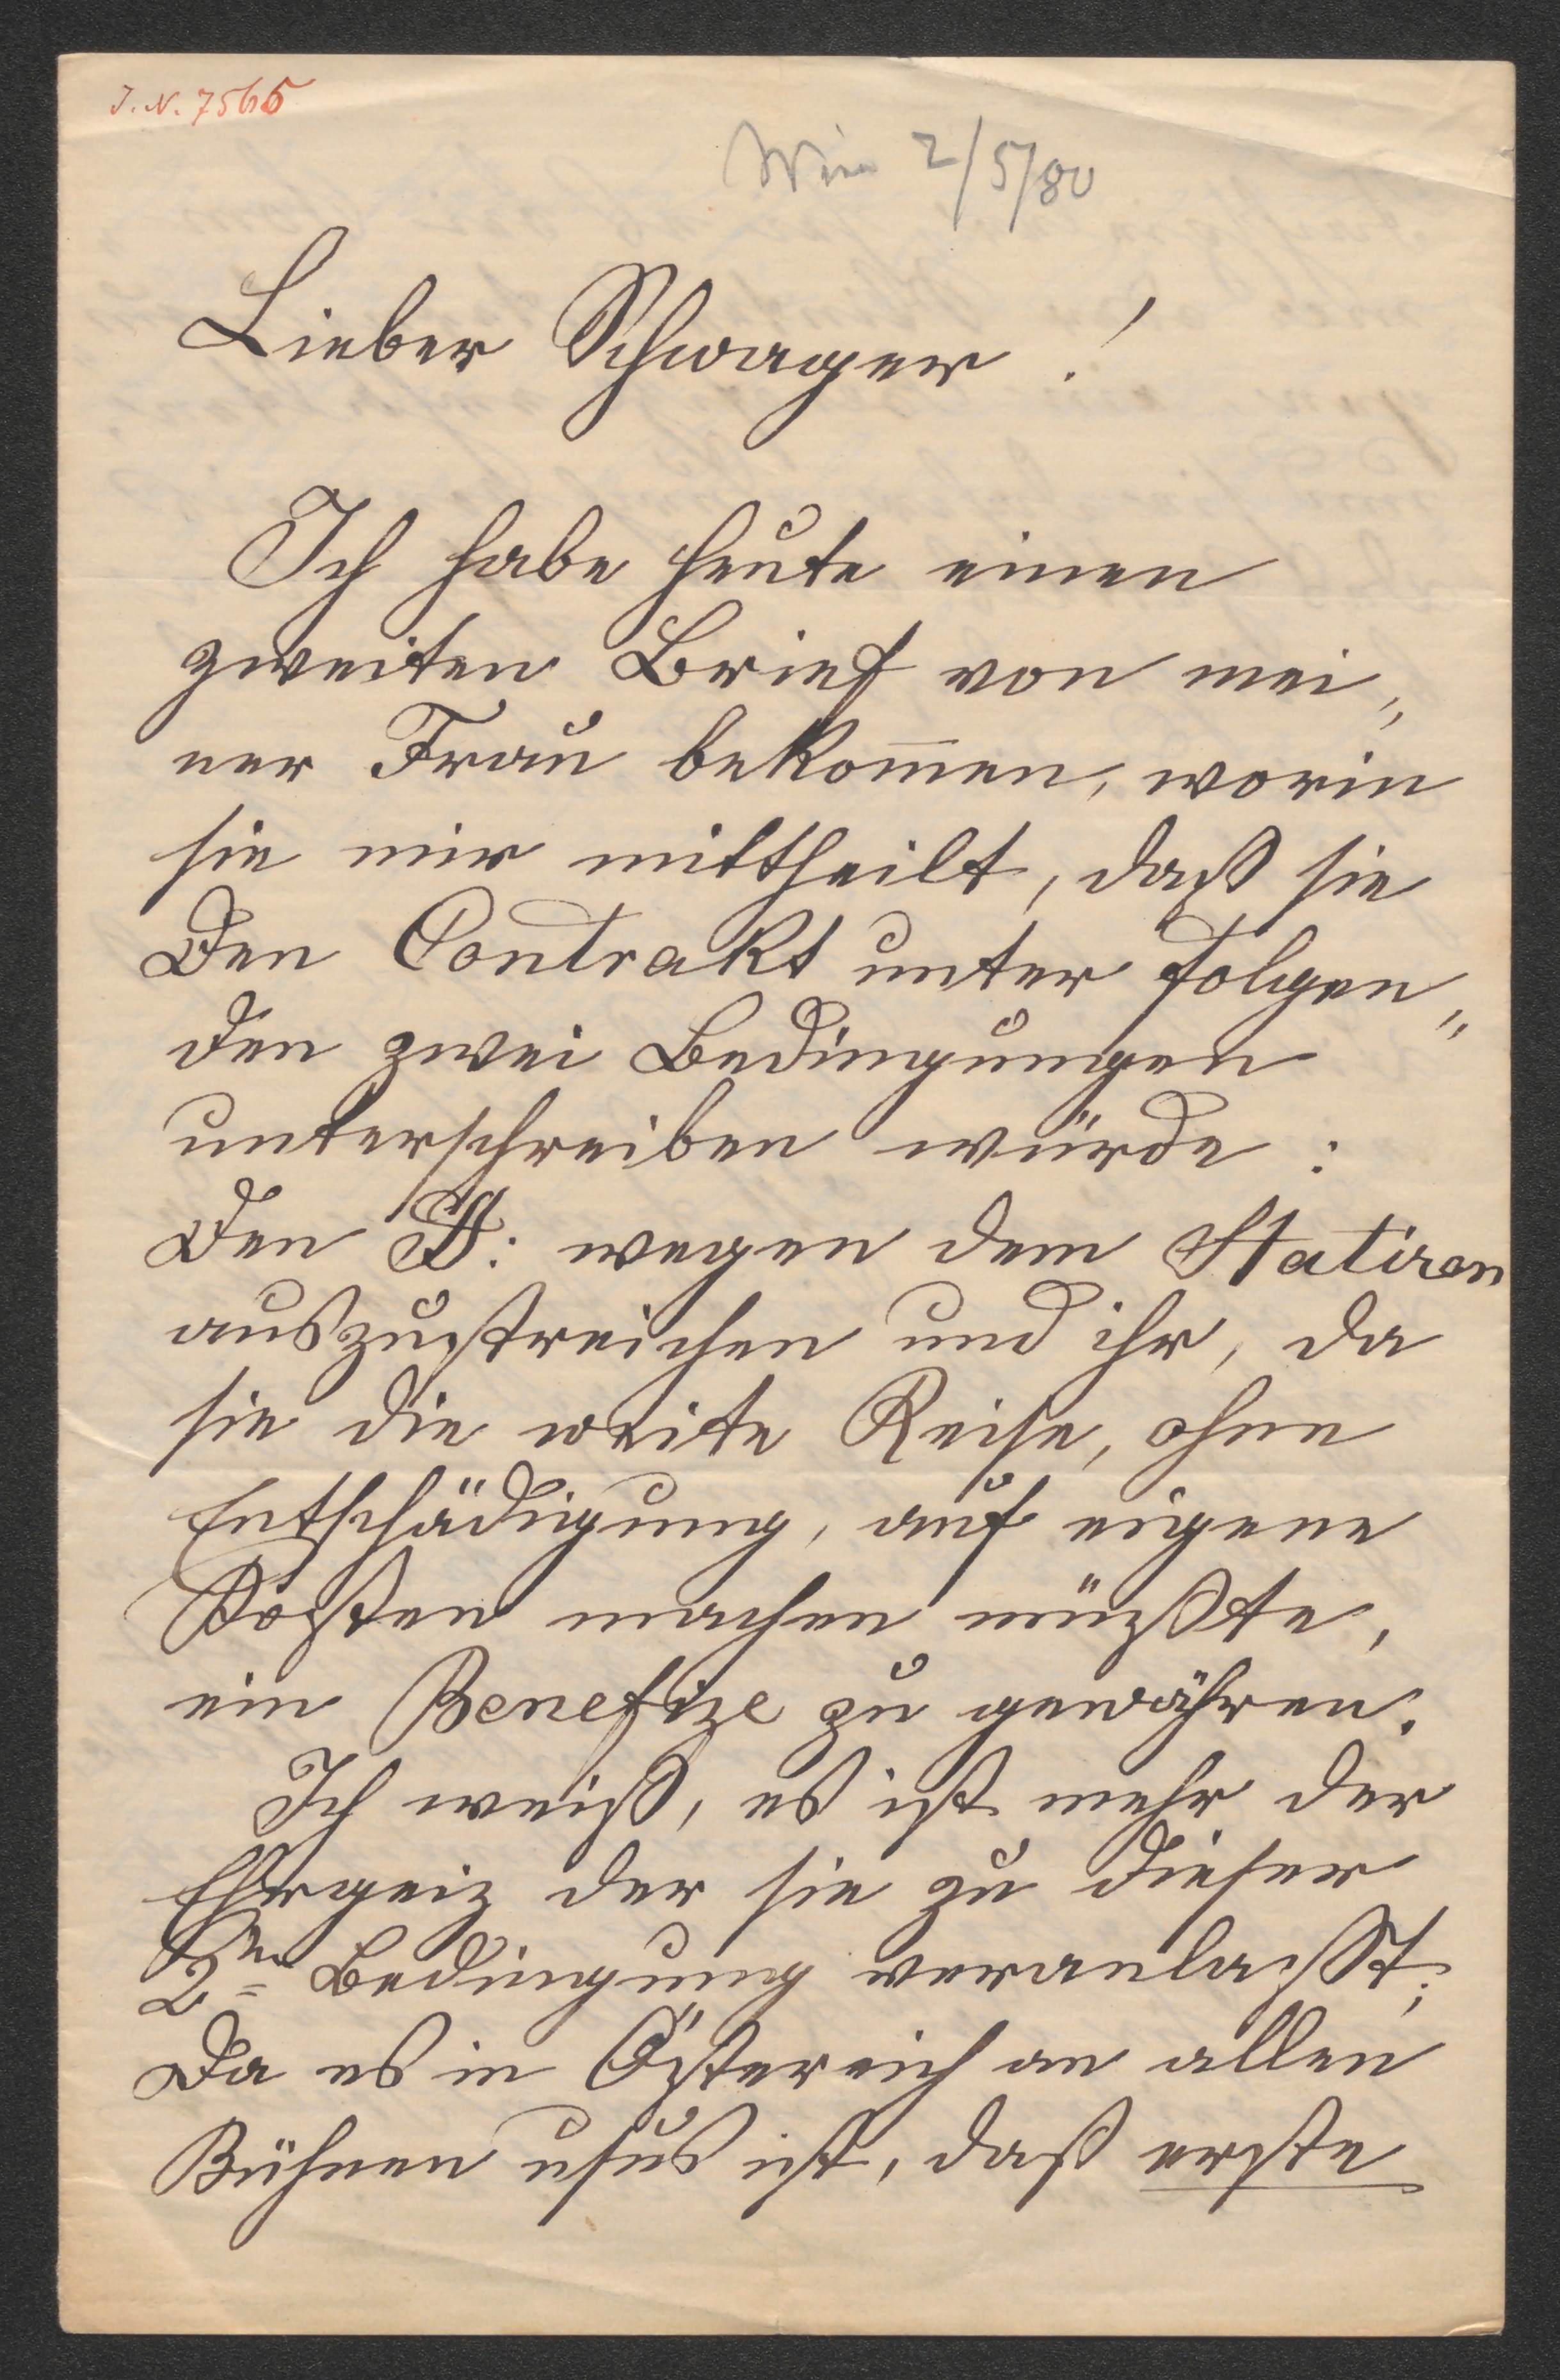 J. N. 7565
Wien 2/5/80
Lieber Schwager!
Ich habe heute einen
zweiten Brief von mei„
ner Frau bekom̅en, worin
sie mir mittheilt, daß sie
den Contrakt unter folgen„
den zwei Bedingungen
unterschreiben würde:
Den §: wegen dem Statiren
auszustreichen und ihr, da
sie die weite Reise, ohne
Entschädigung, auf eigene
Kosten machen müßte,
ein Benefize zu gewähren.
Ich weiß, es ist mehr der
Ehrgeiz der sie zu dieser
2ten Bedingung veranlaßt;
da es in Östereich an allen
Bühnen usus ist, daß erste